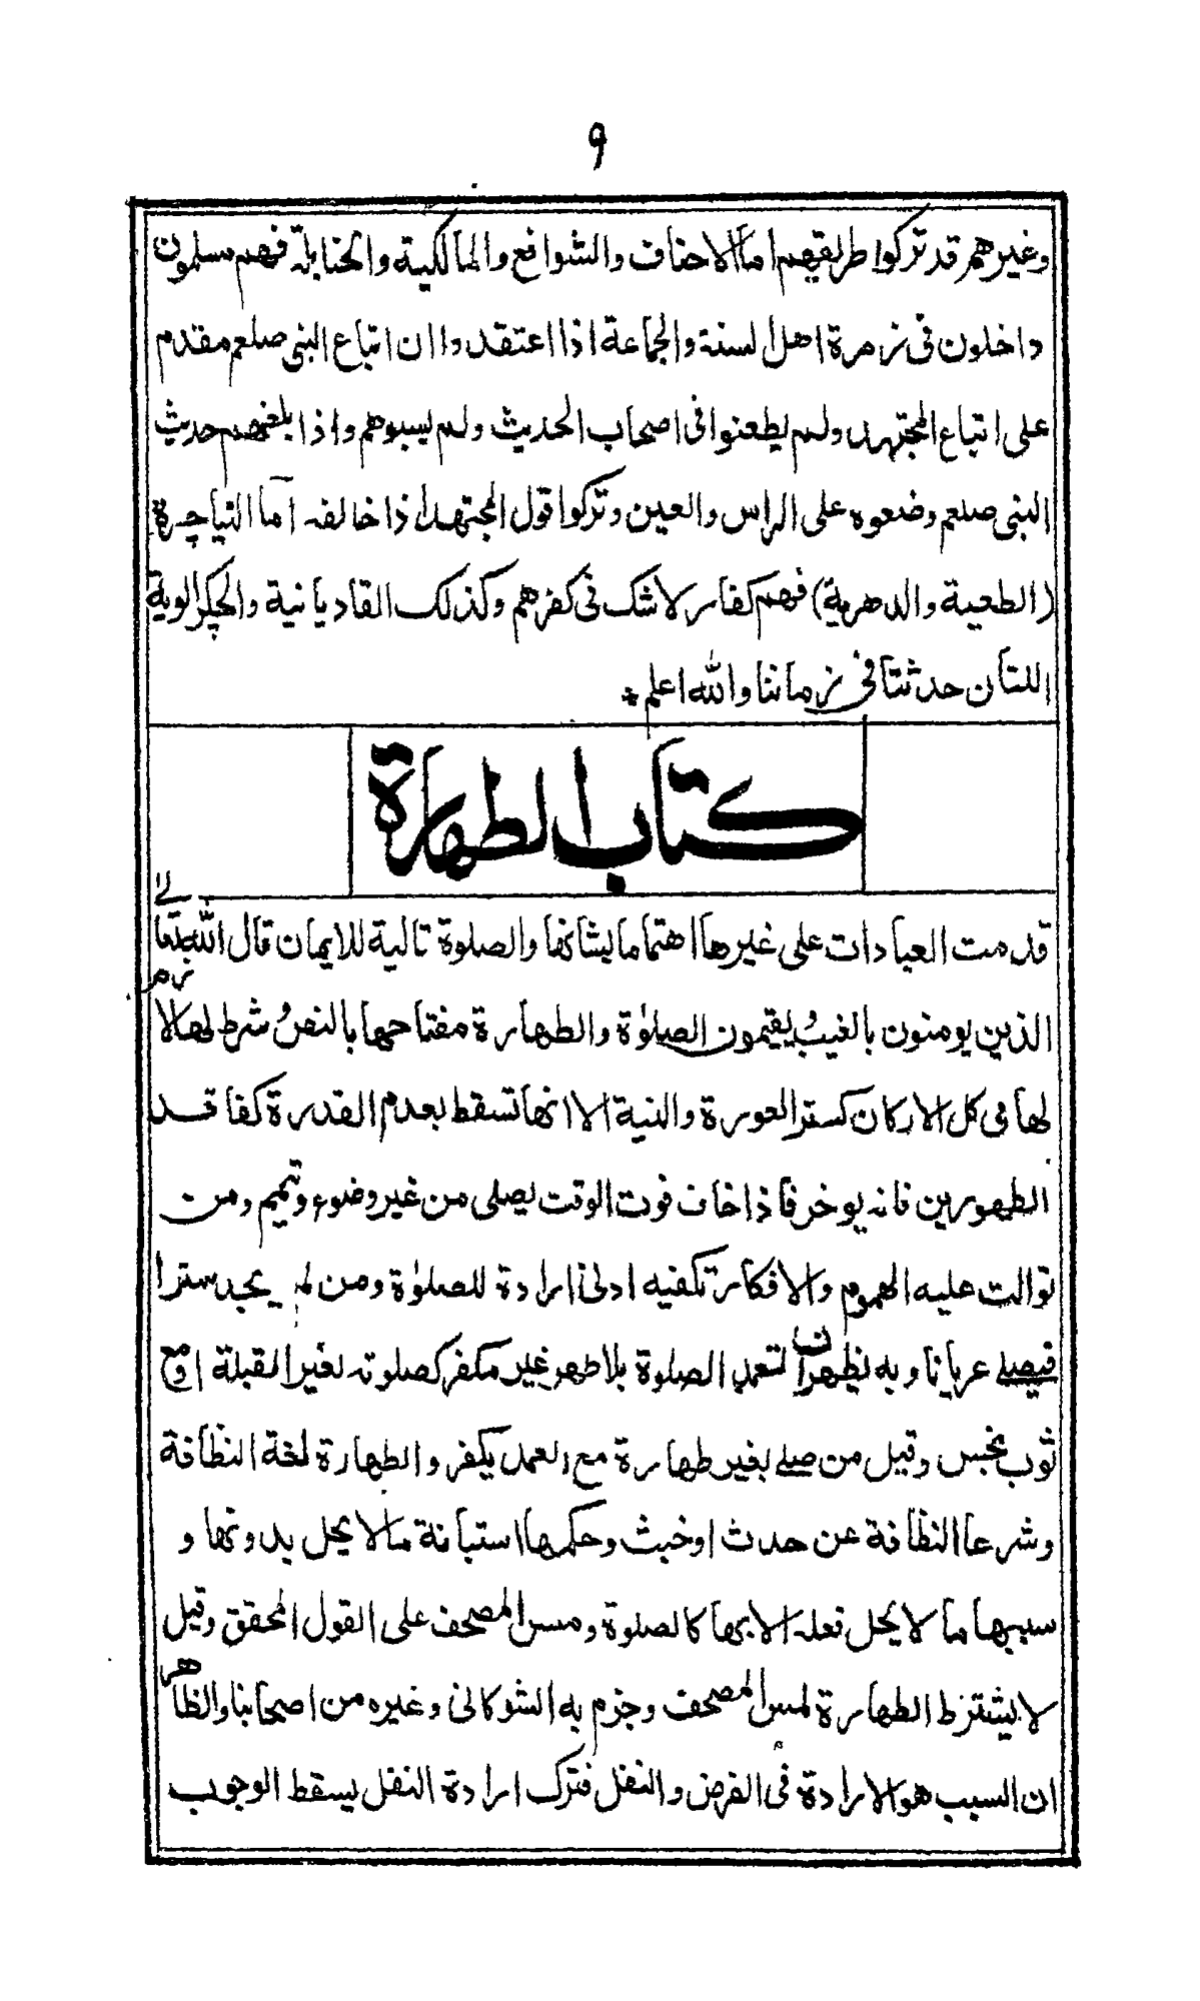 ۹
وغيرهم قد تركوا طريقهم اما الاحناف والشوافع والمالكية والحنابلة فهم مسلمون
داخلون فى زمرة اهل السنة والجماعة اذا اعتقدوا ان اتباع النبى صلعم مقدم
على اتباع المجتهد ولم يطعنوا فى اصحاب الحديث ولم يسبوهم واذا بلغهم حديث
النبى صلعم وضعوه على الراس والعين وتركوا قول المجتهد اذا خالفه آما النياچرة
(الطعية والدهرية) فهم كفار لا شك فى كفرهم وكذلك القاديانية والچكرالوية
اللتان حدثتا فى زماننا والله اعلم *
كتاب الطهارة
قدمت العبادات على غيرها اهتماما بشانها والصلوة تالية للايمان قال الله تعالے
الذين يومنون بالغيب ويقيمون الصلوٰة والطهارة مفتاحها بالنص وشرط لها لازم
لها فى كل الاركان كستر العورة والنية الا انها تسقط بعدم القدرة كفاقد
الطهورين فانه يوخر فاذا خاف فوت الوقت يصلى من غير وضوء وتيمم ومن
توالت عليه الهموم والافكار تكفيه ادنى ارادة للصلوٰة ومن لم يجد سترا
فيصلے عريانا وبه يظهر ان تعمد الصلوة بلا طهر غير مكفر كصلوته لغير القبلة او مع
ثوب نجس وقيل من صلے بغير طهارة مع العمد يكفر والطهارة لغة النظافة
وشرعا النظافة عن حدث او خبث وحكمها استبانة ما لا يحل بدونها و
سببها ما لا يحل فعله الا بها كالصلوة ومس المصحف على القول المحقق وقيل
لا يشترط الطهارة لمس المصحف وجزم به الشوكانى وغيره من اصحابنا والظاهر
ان السبب هو الارادة فى الفرض والنفل فترك ارادة النفل يسقط الوجوب